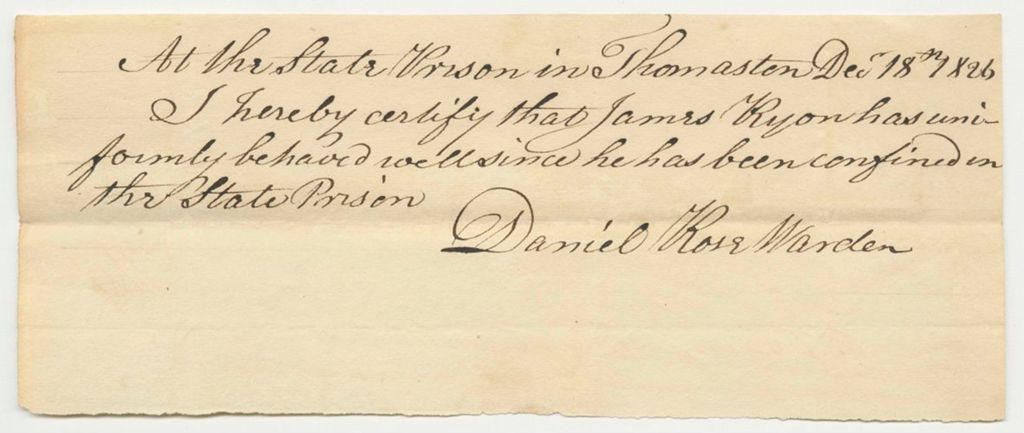 At the State Prison in Thomaston Decr 18th 1826
I hereby certify that James Ryon has uni-
formly behaved well since he has been confined in
the State Prison
Daniel Rose Warden